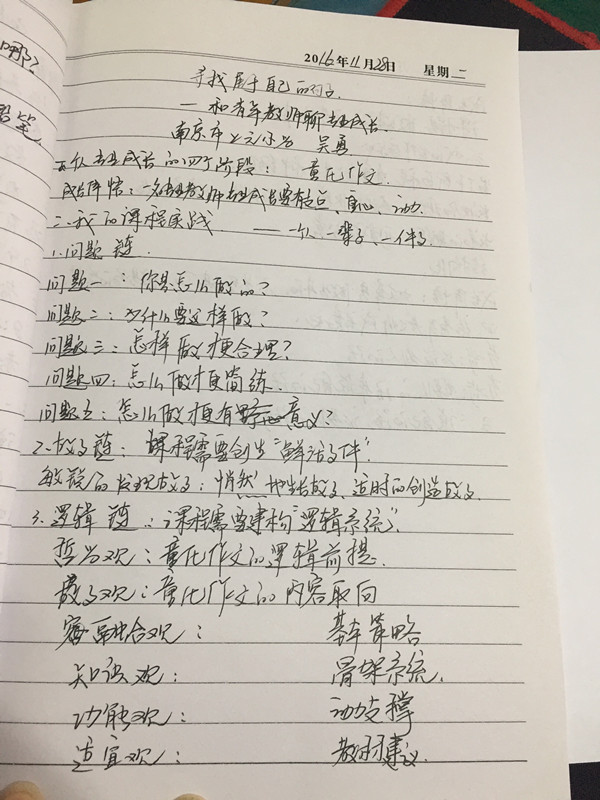 哪?
铅笔
2016年11月28日 星期二
寻找属于自己的句子
—和青年教师聊专业成长
南京市上元小学 吴勇
一、从专业成长的四个阶段: 童化作文
成长库悟:一名专业教师专业成长要有起点、重心、动力.
二、我的课程实践 —— 一人、一辈子、一件事
1.问题链.
问题一:你是怎么做的?
问题二:为什么要这样做?
问题三:怎样做更合理?
问题四:怎么做才更简练.
问题五:怎么做才更有意义?
2.故事链:课程需要创生“鲜活事件”.
敏锐的发现故事;悄然地生长故事、适时的创造故事.
3.逻辑链:课程需要建构“逻辑系统”.
哲学观:童化作文的逻辑前提.
教学观:童化作文的内容取向
融合观: 基本策略
知识观: 骨架系统.
功能观: 动力支撑
适宜观: 教材建议.